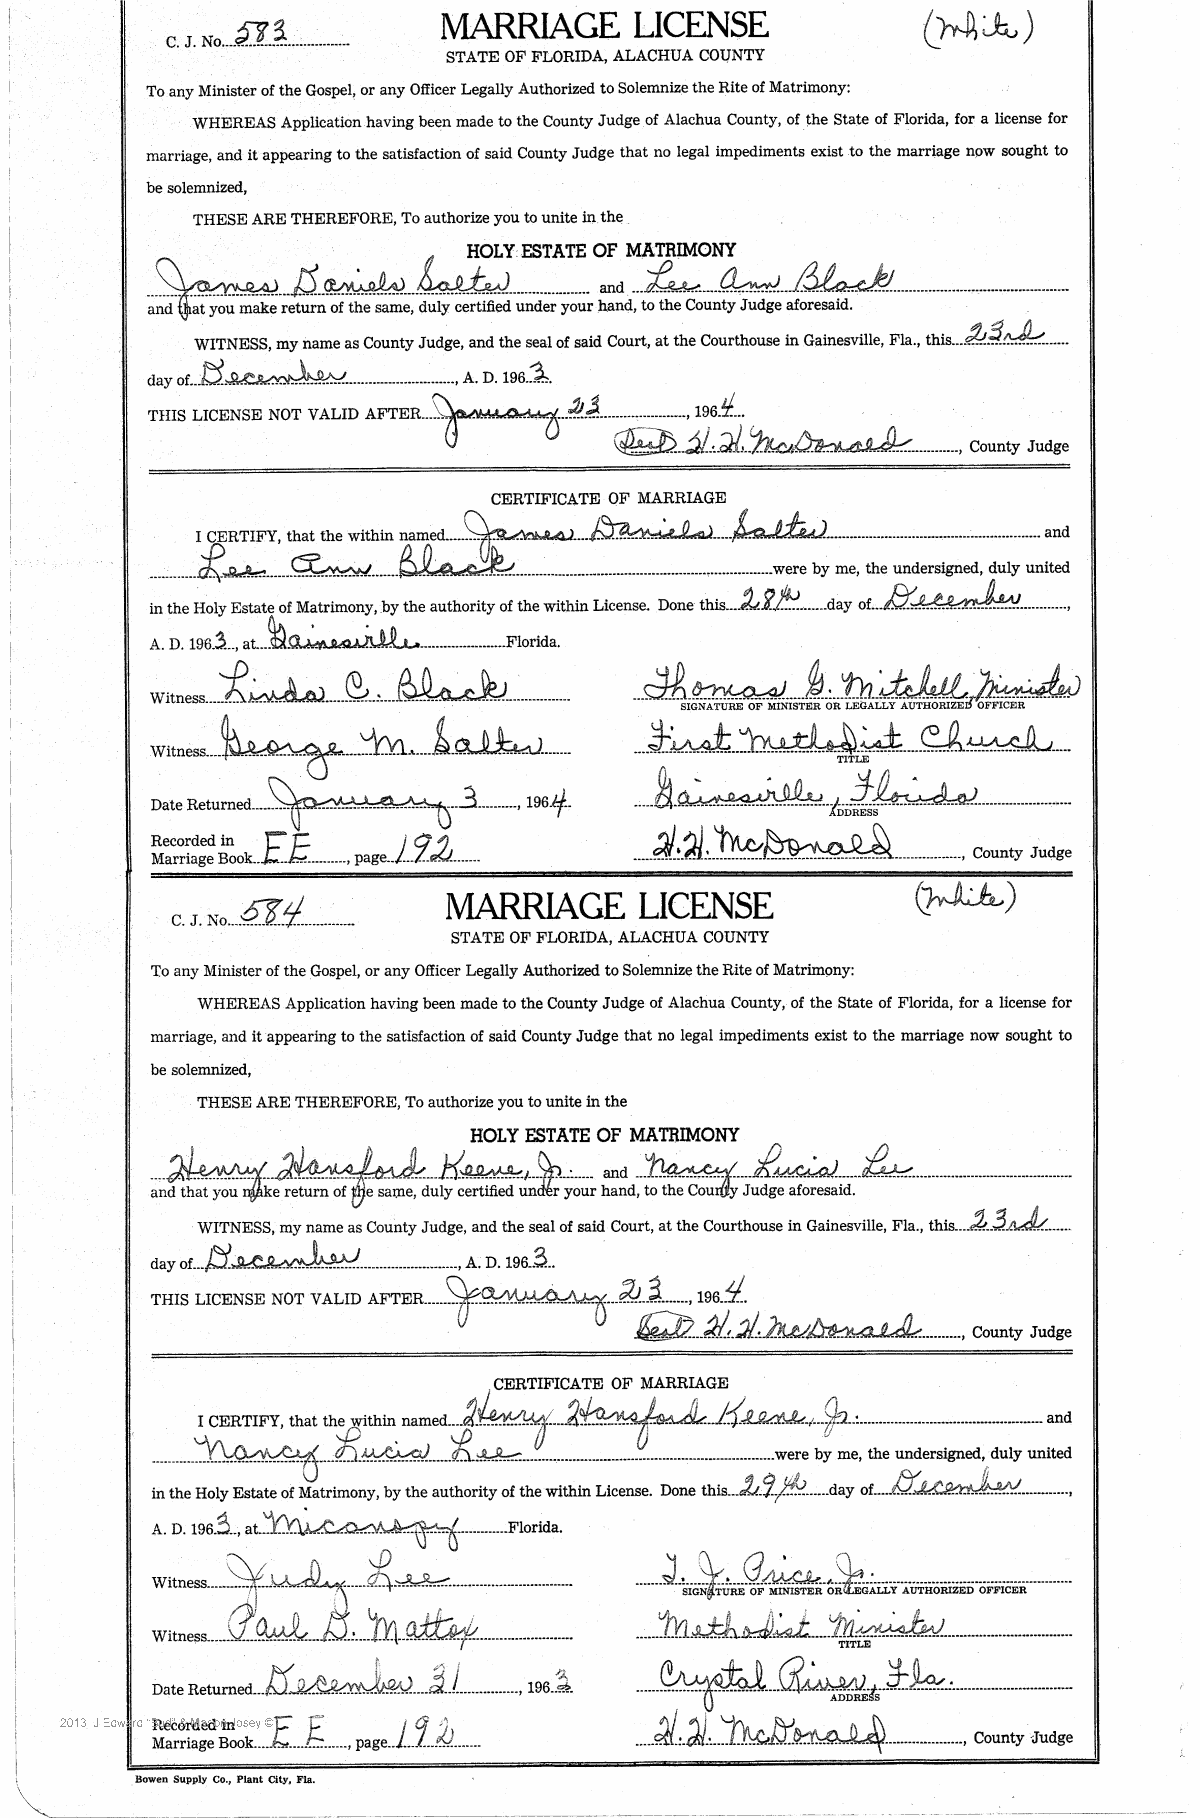 C. J. No. 583 MARRIAGE LICENSE (White)
STATE OF FLORIDA, ALACHUA COUNTY
To any Minister of the Gospel, or any Officer Legally Authorized to Solemnize the Rite of Matrimony:
WHEREAS Application having been made to the County Judge of Alachua County, of the State of Florida, for a license for
marriage, and it appearing to the satisfaction of said County Judge that no legal impediments exist to the marriage now sought to
be solemnized,
THESE ARE THEREFORE, To authorize you to unite in the
HOLY ESTATE OF MATRIMONY
James Daniels Salter and Lee Ann Black
and that you make return of the same, duly certified under your hand, to the County Judge aforesaid.
WITNESS, my name as County Judge, and the seal of said Court, at the Courthouse in Gainesville, Fla., this 23rd
day of December, A. D. 1963
THIS LICENSE NOT VALID AFTER January 23, 1964
Seal H. H. McDonald, County Judge
CERTIFICATE OF MARRIAGE
I CERTIFY, that the within named James Daniels Salter and
Lee Ann Black were by me, the undersigned, duly united
in the Holy Estate of Matrimony, by the authority of the within License. Done this 28th day of December,
A. D. 1963, at Gainesville Florida.
Witness Linda C. Black Thomas G. Mitchell, Minister
SIGNATURE OF MINISTER OR LEGALLY AUTHORIZED OFFICER
Witness George M. Salter First Methodist Church
TITLE
Date Returned January 3, 1964 Gainesville, Florida
ADDRESS
Recorded in
Marriage Book EE, page 192 H. H. McDonald, County Judge
C. J. No. 584 MARRIAGE LICENSE (White)
STATE OF FLORIDA, ALACHUA COUNTY
To any Minister of the Gospel, or any Officer Legally Authorized to Solemnize the Rite of Matrimony:
WHEREAS Application having been made to the County Judge of Alachua County, of the State of Florida, for a license for
marriage, and it appearing to the satisfaction of said County Judge that no legal impediments exist to the marriage now sought to
be solemnized,
THESE ARE THEREFORE, To authorize you to unite in the
HOLY ESTATE OF MATRIMONY
Henry Hansford Keene, Jr. and Nancy Lucia Lee
and that you make return of the same, duly certified under your hand, to the County Judge aforesaid.
WITNESS, my name as County Judge, and the seal of said Court, at the Courthouse in Gainesville, Fla., this 23rd
day of December, A. D. 1963.
THIS LICENSE NOT VALID AFTER January 23, 1964
Seal H. H. McDonald, County Judge
CERTIFICATE OF MARRIAGE
I CERTIFY, that the within named Henry Hansford Keene, Jr. and
Nancy Lucia Lee were by me, the undersigned, duly united
in the Holy Estate of Matrimony, by the authority of the within License. Done this 29th day of December,
A. D. 1963, at Micanopy Florida.
Witness Judy Lee T. J. Price, Jr.
SIGNATURE OF MINISTER OR LEGALLY AUTHORIZED OFFICER
Witness Paul D. Mattox Methodist Minister
TITLE
Date Returned December 31, 1963 Crystal River, Fla.
ADDRESS
2013 J Edward Josey ©
Recorded in
Marriage Book EE, page 192 H. H. McDonald, County Judge
Bowen Supply Co., Plant City, Fla.